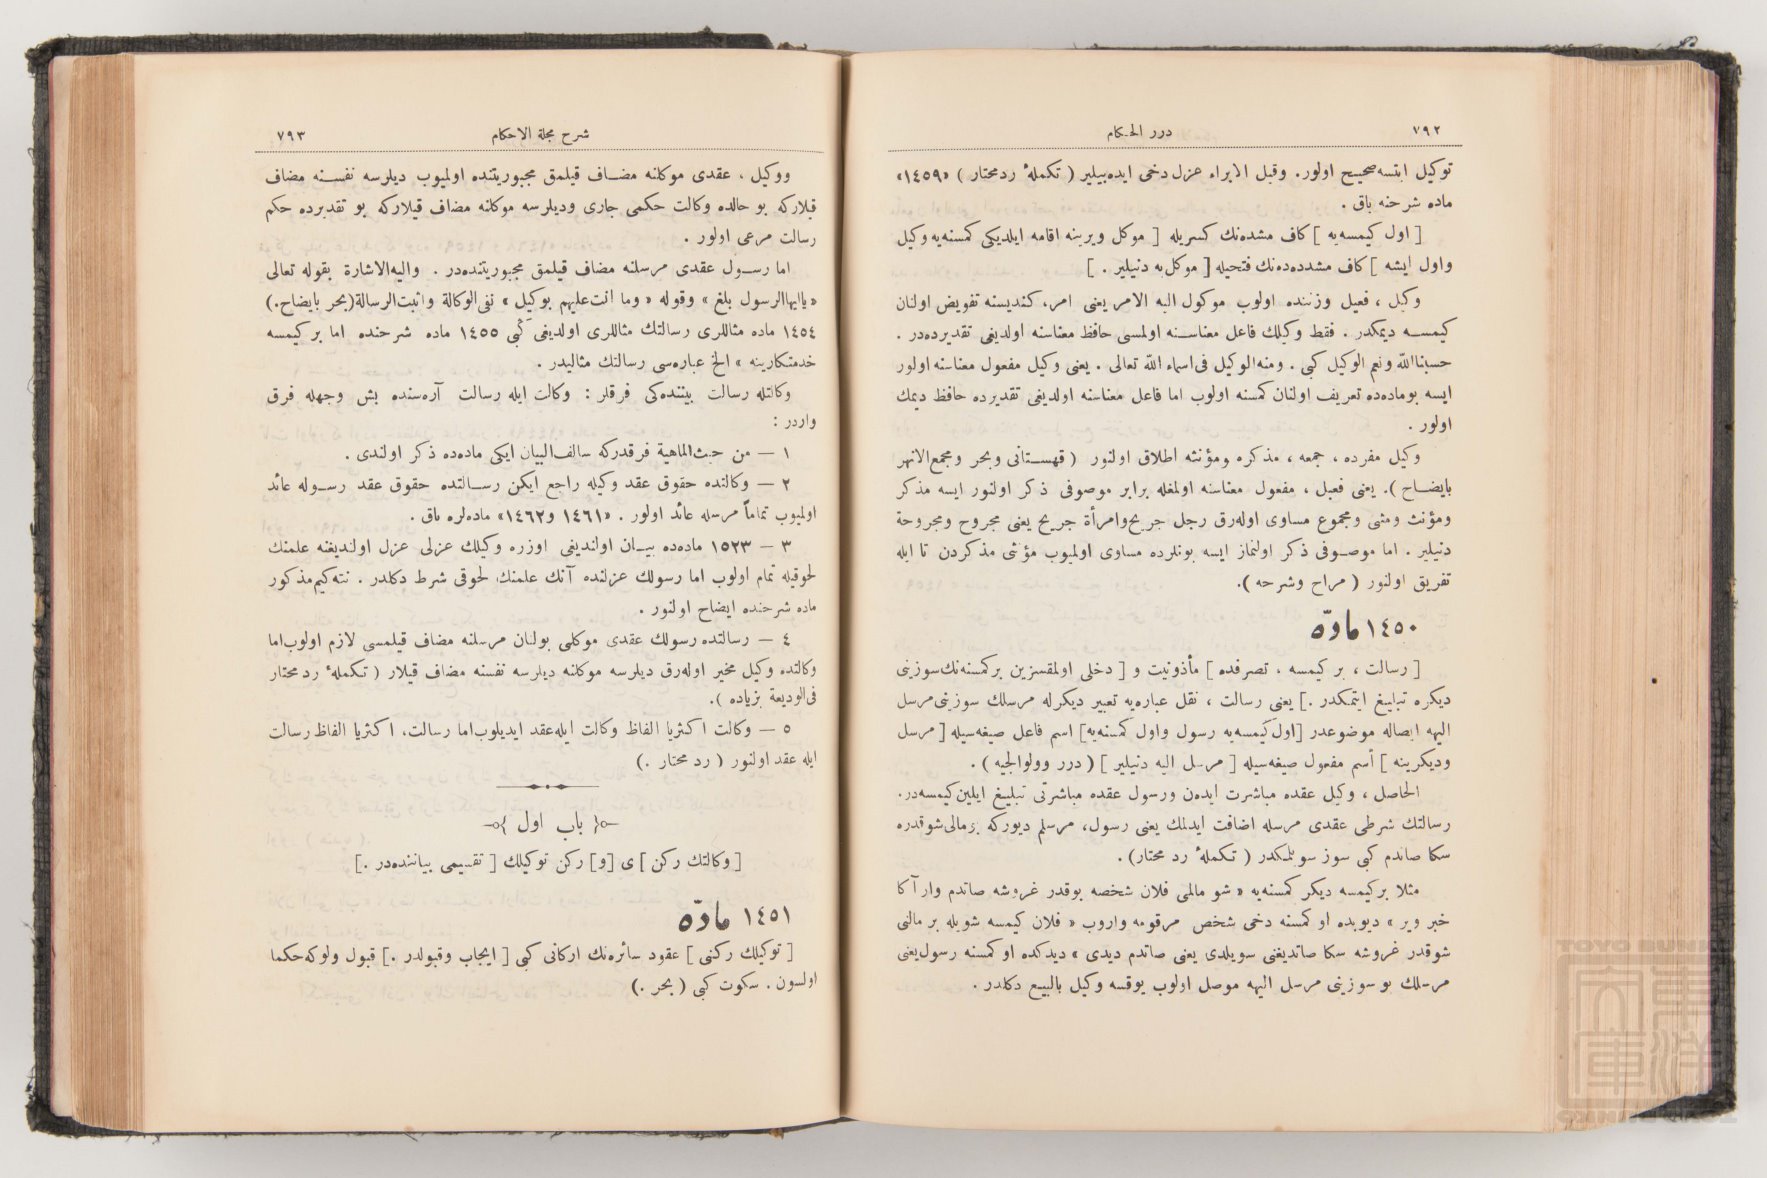 ٧٩٢
درر الحكام
توكيل ايتسه صحيح اولور. وقبل الابراء عزل دخى ايده‌بيلير ( تكملۀ ردمحتار ) «١٤٥٩»
ماده شرحنه باق .
[ اول كيمسه‌يه ] كاف مشدده‌نك كسريله [ موكل ويرينه اقامه ايلديكى كمسنه‌يه وكيل
واول ايشه ] كاف مشدده‌ده‌نك فتحيله [ موكل‌به دنيلير . ]
وكيل ، فعيل وزننده اولوب موكول اليه الامر يعنى امر، كنديسنه تفويض اولنان
كيمسه ديمكدر . فقط وكيلك فاعل معناسنه اولمسى حافظ معناسنه اولديغى تقديرده‌در .
حسبنا الله ونعم الوكيل كبى . ومنه الوكيل فى اسماء الله تعالى . يعنى وكيل مفعول معناسنه اولور
ايسه بوماده‌ده تعريف اولنان كمسنه اولوب اما فاعل معناسنه اولديغى تقديرده حافظ ديمك
اولور .
وكيل مفرده ، جمعه ، مذكره ومؤنثه اطلاق اولنور ( قهستانى وبحر ومجمع‌الانهر
بايضاح ). يعنى فعيل ، مفعول معناسنه اولمغله برابر موصوفى ذكر اولنور ايسه مذكر
ومؤنث ومثنى ومجموع مساوى اوله‌رق رجل جريح وامرأة جريح يعنى مجروح ومجروحة
دنيلير . اما موصوفى ذكر اولنماز ايسه بونلرده مساوى اولميوب مؤنثى مذكردن تا ايله
تفريق اولنور ( مراح وشرحه ).
١٤٥٠ ماده
[ رسالت ، بر كيمسه ، تصرفده ] مأذونيت و [ دخلى اولمقسزين بركمسنه‌نك سوزينى
ديكره تبليغ ايتمكدر .] يعنى رسالت ، نقل عباره‌يه تعبير ديكرله مرسلك سوزينى مرسل
اليهه ايصاله موضوعدر [اول كيمسه‌يه رسول واول كمسنه‌يه] اسم فاعل صيغه‌سيله [ مرسل
وديكرينه ] اسم مفعول صيغه‌سيله [ مرسل اليه دنيلير ] ( درر وولوالجيه ) .
الحاصل ، وكيل عقده مباشرت ايدەن ورسول عقده مباشرتى تبليغ ايلين كيمسه‌در.
رسالتك شرطى عقدى مرسله اضافت ايدلمك يعنى رسول، مرسلم ديوركه بر مالى شوقدره
سكا صاتدم كبى سوز سويلمكدر ( تكملۀ رد محتار ) .
مثلا بركيمسه ديكر كمسنه‌يه « شو مالمى فلان شخصه بوقدر غروشه صاتدم وار آكا
خبر وير » ديوبده او كمسنه دخى شخص مرقومه واروب « فلان كيمسه شويله بر مالنى
شوقدر غروشه سكا صاتديغنى سويلدى يعنى صاتدم ديدى » ديدكده او كمسنه رسول يعنى
مرسلك بو سوزينى مرسل اليهه موصل اولوب يوقسه وكيل بالبيع دكلدر .
شرح مجلة الاحكام
٧٩٣
ووكيل ، عقدى موكلنه مضاف قيلمق مجبوريتنده اولميوب ديلرسه نفسنه مضاف
قيلاركه بو حالده وكالت حكمى جارى وديلرسه موكلنه مضاف قيلاركه بو تقديرده حكم
رسالت مرعى اولور .
اما رسول عقدى مرسلنه مضاف قيلمق مجبوريتنده‌در . واليه الاشارة بقوله تعالى
« ياايهاالرسول بلغ » وقوله « وما انت عليهم بوكيل » نفى الوكالة واثبت الرسالة (بحر بايضاح.)
١٤٥٤ ماده مثاللرى رسالتك مثاللرى اولديغى كبى ١٤٥٥ ماده شرحنده اما بر كيمسه
خدمتكارينه » الخ عباره‌سى رسالتك مثاليدر .
وكالتله رسالت بيننده‌كى فرقلر : وكالت ايله رسالت آره‌سنده بش وجهله فرق
واردر :
١ — من حيث الماهية فرقدركه سالف‌البيان ايكى ماده‌ده ذكر اولندى .
٢ — وكالتده حقوق عقد وكيله راجع ايكن رسالتده حقوق عقد رسوله عائد
اولميوب تماماً مرسله عائد اولور . «١٤٦١ و١٤٦٢» ماده‌لره باق .
٣ — ١٥٢٣ ماده‌ده بيان اولنديغى اوزره وكيلك عزلى عزل اولنديغنه علمنك
لحوقيله تمام اولوب اما رسولك عزلنده آنك علمنك لحوقى شرط دكلدر . نته‌كيم مذكور
ماده شرحنده ايضاح اولنور .
٤ — رسالتده رسولك عقدى موكلى بولنان مرسلنه مضاف قيلمسى لازم اولوب اما
وكالتده وكيل مخير اوله‌رق ديلرسه موكلنه ديلرسه نفسنه مضاف قيلار ( تكملۀ رد محتار
فى الوديعة بزياده ).
٥ — وكالت اكثريا الفاظ وكالت ايله عقد ايديلوب اما رسالت، اكثريا الفاظ رسالت
ايله عقد اولنور ( رد محتار .)
باب اول
[ وكالتك ركن ] ى [و] ركن توكيلك [ تقسيمى بياننده‌در .]
١٤٥١ ماده
[ توكيلك ركنى ] عقود سائره‌نك اركانى كبى [ ايجاب وقبولدر .] قبول ولوكه حكما
اولسون . سكوت كبى ( بحر .)